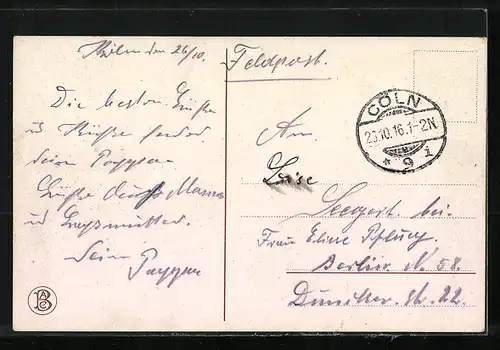 Köln den 26/10.
Die besten Grüße
u Küße sendet
Dein Pappa
Grüße an Mama
u Großmutter.
Dein Pappa
Feldpost.
CÖLN
10.16.1-2N
* 9 i
An
Luise
Seegert bei
Frau Eline Pflug
Berlin N. 58.
Str. 22.